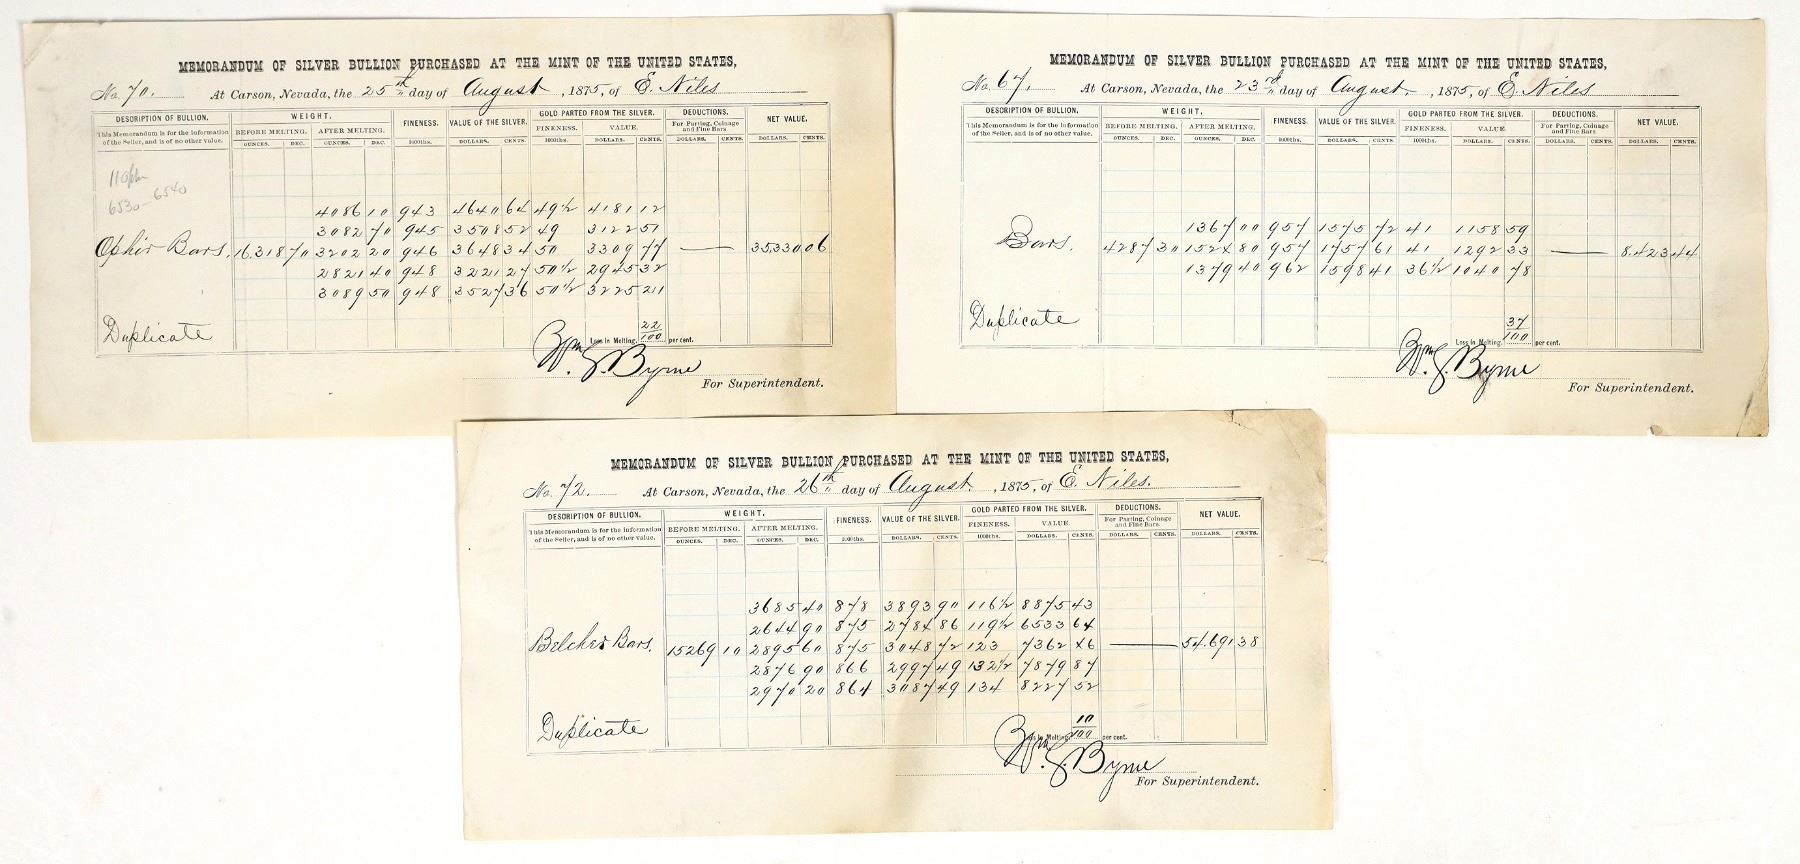 MEMORANDUM OF SILVER BULLION PURCHASED AT THE MINT OF THE UNITED STATES,
No. 70. At Carson, Nevada, the 25th day of August, 1875, of E. Niles
DESCRIPTION OF BULLION. WEIGHT. FINENESS. VALUE OF THE SILVER. GOLD PARTED FROM THE SILVER. DEDUCTIONS. NET VALUE.
This Memorandum is for the information of the Seller, and is of no other value. BEFORE MELTING. AFTER MELTING. FINENESS. VALUE. For Parting, Coinage and Fine Bars
OUNCES. DEC. OUNCES. DEC. 1000ths. DOLLARS. CENTS. 1000ths. DOLLARS. CENTS. DOLLARS. CENTS. DOLLARS. CENTS.
6530-6540
4086 10 943 4640 64 49½ 4181 12
3082 70 945 3508 52 49 3122 51
Ophir Bars. 16.318 70 3202 20 946 3648 34 50 3309 77 — 35,330 06
2821 40 948 3221 27 50½ 2945 32
3089 50 948 3527 36 50½ 3225 21
Duplicate
Loss in Melting, 22/100 per cent.
Wm. S. Byrne
For Superintendent.
MEMORANDUM OF SILVER BULLION PURCHASED AT THE MINT OF THE UNITED STATES,
No. 67. At Carson, Nevada, the 23rd day of August, 1875, of E. Niles
DESCRIPTION OF BULLION. WEIGHT, FINENESS. VALUE OF THE SILVER. GOLD PARTED FROM THE SILVER. DEDUCTIONS. NET VALUE.
This Memorandum is for the information of the Seller, and is of no other value. BEFORE MELTING. AFTER MELTING. FINENESS. VALUE. For Parting, Coinage and Fine Bars
OUNCES. DEC. OUNCES. DEC. 1000ths. DOLLARS. CENTS. 1000ths. DOLLARS. CENTS. DOLLARS. CENTS. DOLLARS. CENTS.
1367 00 957 1575 72 41 1158 59
Bars. 4287 30 1524 80 957 1757 61 41 1292 33 — 8,423 44
1379 40 962 1598 41 36½ 1040 78
Duplicate
Loss in Melting, 37/100 per cent.
Wm. S. Byrne
For Superintendent.
MEMORANDUM OF SILVER BULLION PURCHASED AT THE MINT OF THE UNITED STATES,
No. 72. At Carson, Nevada, the 26th day of August, 1875, of E. Niles.
DESCRIPTION OF BULLION. WEIGHT, FINENESS. VALUE OF THE SILVER. GOLD PARTED FROM THE SILVER. DEDUCTIONS. NET VALUE.
This Memorandum is for the information of the Seller, and is of no other value. BEFORE MELTING. AFTER MELTING. FINENESS. VALUE. For Parting, Coinage and Fine Bars
OUNCES. DEC. OUNCES. DEC. 1000ths. DOLLARS. CENTS. 1000ths. DOLLARS. CENTS. DOLLARS. CENTS. DOLLARS. CENTS.
3685 40 878 3893 90 116½ 8875 43
2644 90 875 2784 86 119½ 6533 64
Belcher Bars. 15269 10 2895 60 875 3048 72 123 7362 46 — 54,691 38
2876 90 866 2997 49 132½ 7879 87
2970 20 864 3087 49 134 8227 52
Duplicate
Loss in Melting, 10/100 per cent.
Wm. S. Byrne
For Superintendent.